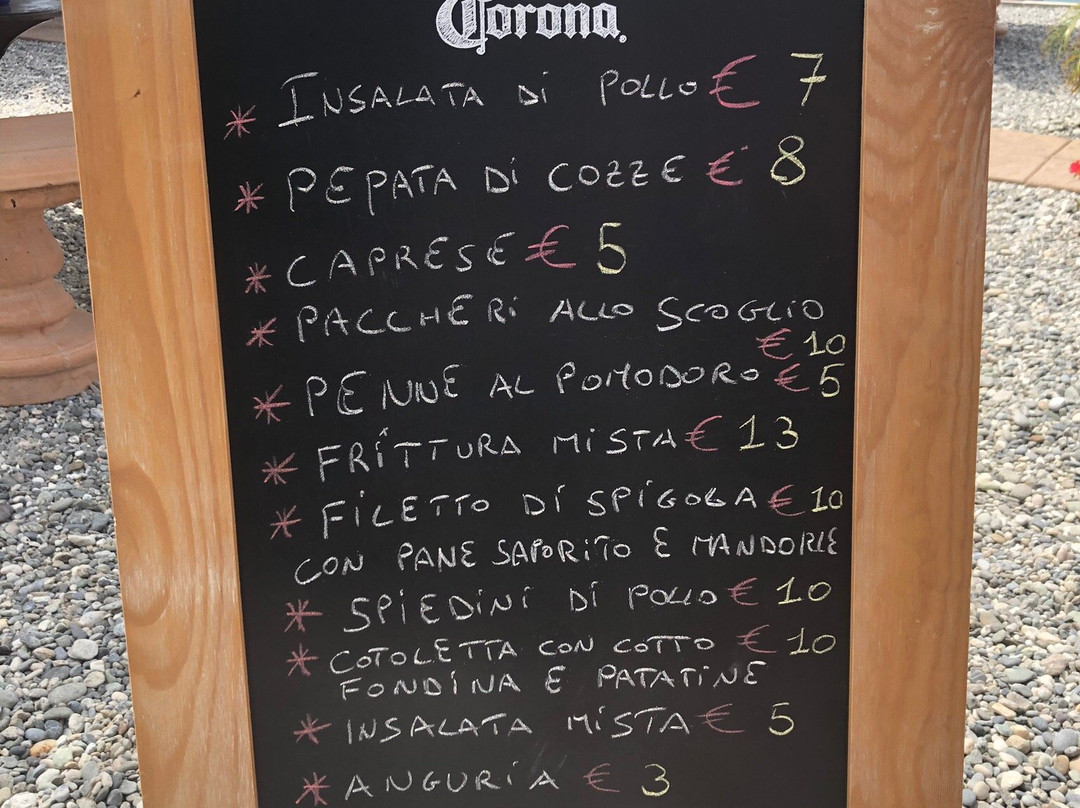 Corona.
* INSALATA Di POLLO € 7
* PEPATA Di COZZE € 8
* CAPRESE € 5
* PACCHERi ALLO SCOGLIO
€ 10
* PENNE AL POMODORO € 5
* FRiTTURA MiSTA € 13
* FiLETTO Di SPiGOLA € 10
CON PANE SAPORiTO E MANDORLE
* SPiEDiNi Di POLLO € 10
* COTOLETTA CON COTTO € 10
FONDiNA E PATATiNE
* iNSALATA MiSTA € 5
* ANGURiA € 3